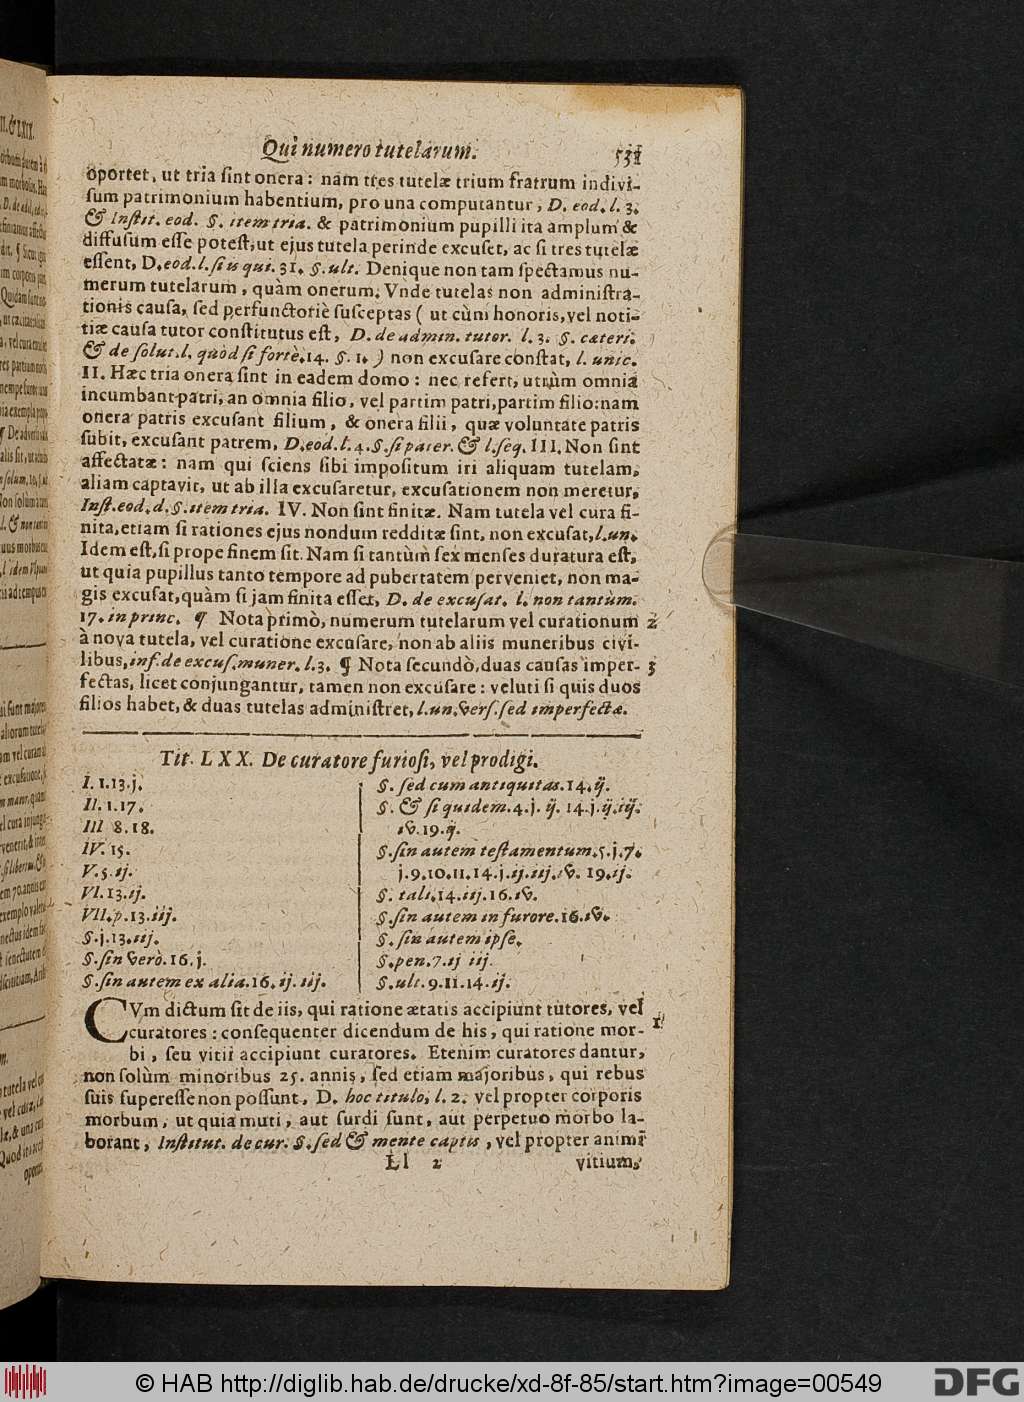 Qui numero tutelarum. 531
oportet, ut tria sint onera: nam tres tutelæ trium fratrum indivi-
sum patrimonium habentium, pro una computantur, D. eod. l. 3.
& Instit. eod. §. item tria. & patrimonium pupilli ita amplum &
diffusum esse potest, ut ejus tutela perinde excuset, ac si tres tutelæ
essent, D. eod. l. si is qui. 31. §. ult. Denique non tam spectamus nu-
merum tutelarum, quàm onerum. Vnde tutelas non administra-
tionis causa, sed perfunctoriè susceptas ( ut cùm honoris, vel noti-
tiæ causa tutor constitutus est, D. de admin. tutor. l. 3. §. cæteri.
& de solut. l. quòd si fortè. 14. §. 1. ) non excusare constat, l. unic.
II. Hæc tria onera sint in eadem domo: nec refert, utrùm omnia
incumbant patri, an omnia filio, vel partim patri, partim filio: nam
onera patris excusant filium, & onera filii, quæ voluntate patris
subit, excusant patrem, D. eod. l. 4. §. si pater. & l. seq. III. Non sint
affectatæ: nam qui sciens sibi impositum iri aliquam tutelam,
aliam captavit, ut ab illa excusaretur, excusationem non meretur,
Inst. eod. d. §. item tria. IV. Non sint finitæ. Nam tutela vel cura fi-
nita, etiam si rationes ejus nondum redditæ sint, non excusat, l. un.
Idem est, si prope finem sit. Nam si tantùm sex menses duratura est,
ut quia pupillus tanto tempore ad pubertatem perveniet, non ma-
gis excusat, quàm si jam finita esset, D. de excusat. l. non tantùm.
17. in princ. ¶ Nota primò, numerum tutelarum vel curationum 2
à nova tutela, vel curatione excusare, non ab aliis muneribus civi-
libus, inf. de excus. muner. l. 3. ¶ Nota secundò, duas causas imper- 3
fectas, licet conjungantur, tamen non excusare: veluti si quis duos
filios habet, & duas tutelas administret, l. un. vers. sed imperfectæ.
Tit. LXX. De curatore furiosi, vel prodigi.
I. 1. 13. j.
II. 1. 17.
III 8. 18.
IV. 15.
V. 5. ij.
VI. 13. ij.
VII. p. 13. iij.
§. j. 13. iij.
§. sin verò. 16. j.
§. sin autem ex alia. 16. ij. iij.
§. sed cum antiquitas. 14. ij.
§. & si quidem. 4. j. ij. 14. j. ij. iij.
iv. 19. ij.
§. sin autem testamentum. 5. j. 7.
j. 9. 10. 11. 14. j. ij. iij. iv. 19. ij.
§. tali. 14. iij. 16. iv.
§. sin autem in furore. 16. iv.
§. sin autem ipse.
§. pen. 7. ij iij.
§. ult. 9. 11. 14. ij.
CVm dictum sit de iis, qui ratione ætatis accipiunt tutores, vel
curatores: consequenter dicendum de his, qui ratione mor- 1
bi, seu vitii accipiunt curatores. Etenim curatores dantur,
non solùm minoribus 25. annis, sed etiam majoribus, qui rebus
suis superesse non possunt, D. hoc titulo, l. 2. vel propter corporis
morbum, ut quia muti, aut surdi sunt, aut perpetuo morbo la-
borant, Institut. de cur. §. sed & mente captis, vel propter animi
Ll 2 vitium,
© HAB http://diglib.hab.de/drucke/xd-8f-85/start.htm?image=00549
DFG